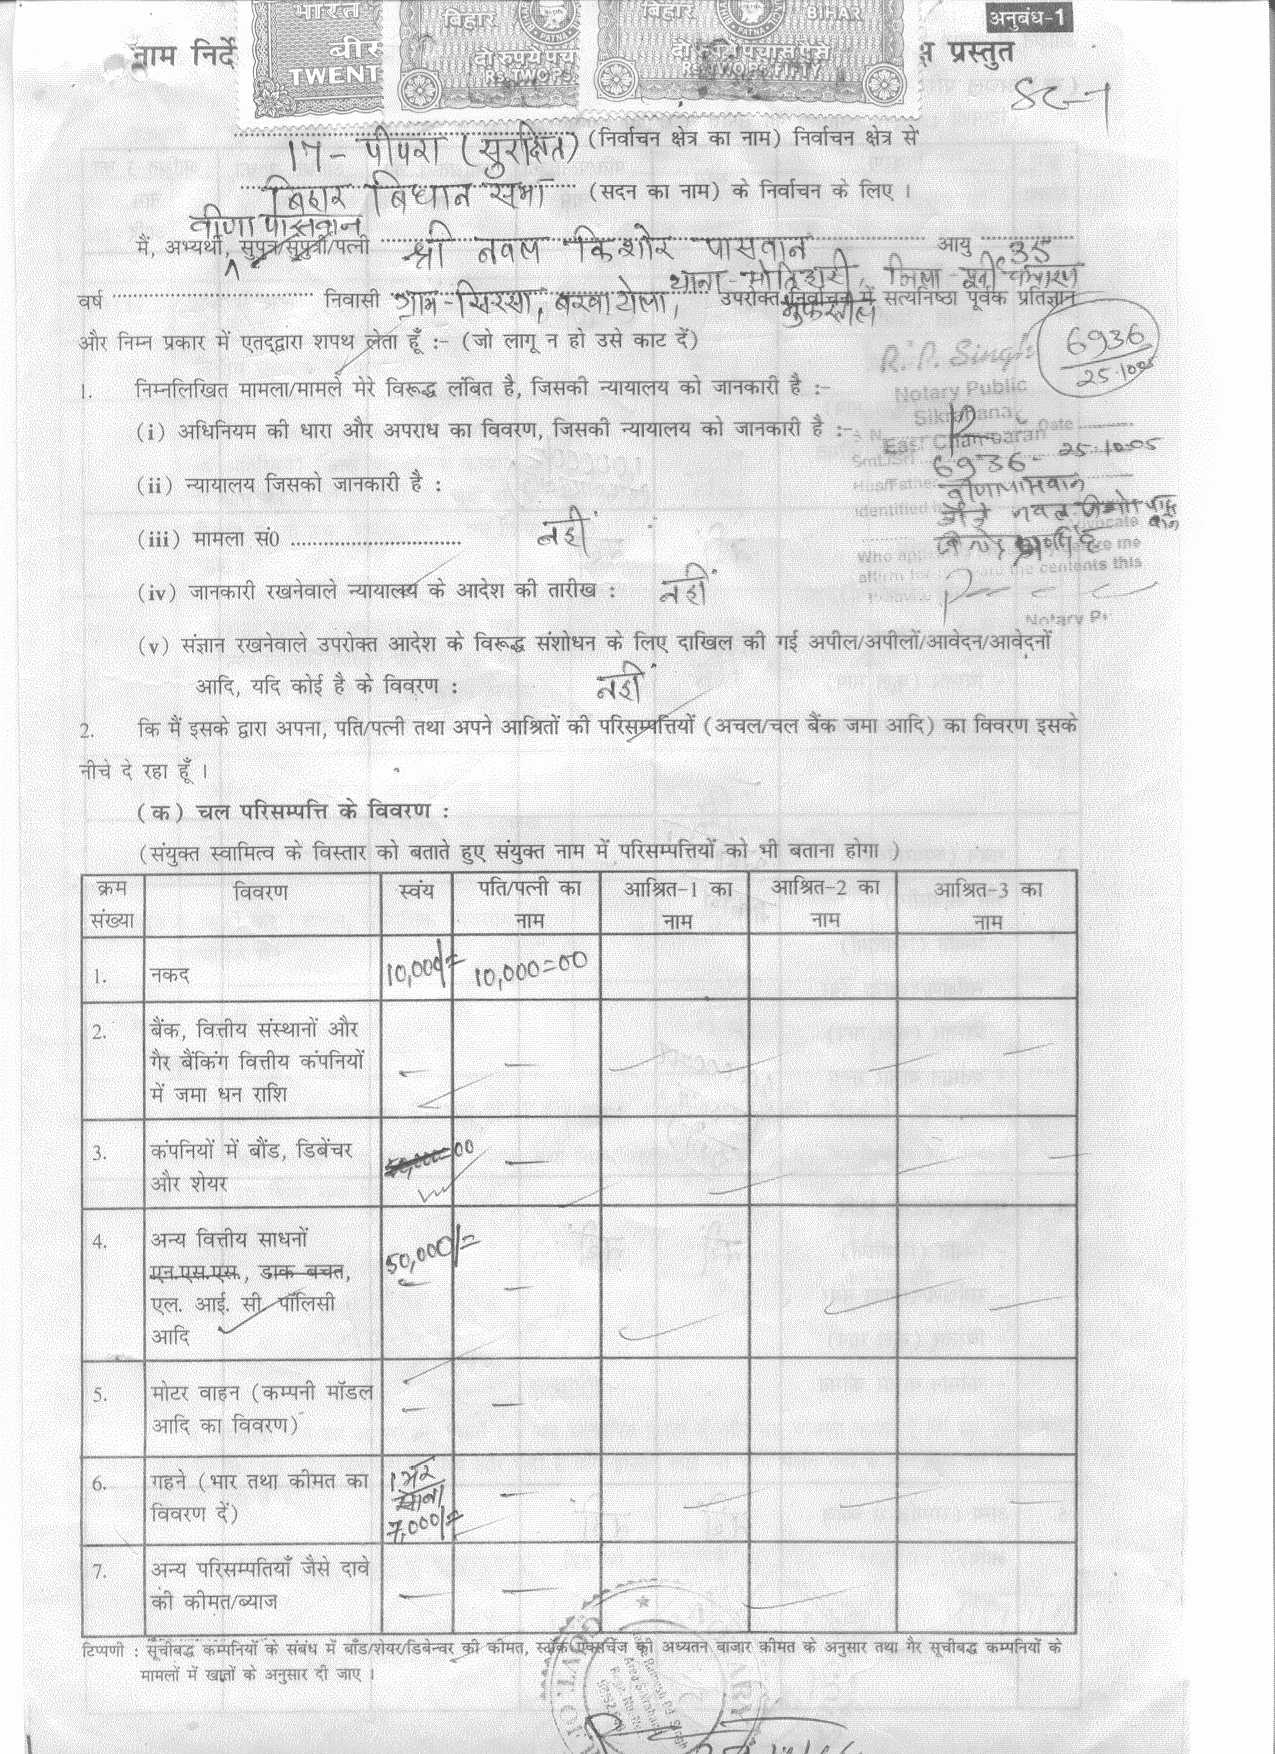 अनुबंध-1
भारत
बिहार
बिहार BIHAR
बीस
दो रुपये पचास पैसे
TWENT
Rs. TWO PS.
Rs. TWO PS. FIFTY
नाम निर्दे
क्ष प्रस्तुत
17- पीपरा (सुरक्षित) (निर्वाचन क्षेत्र का नाम) निर्वाचन क्षेत्र से
बिहार बिधान सभा (सदन का नाम) के निर्वाचन के लिए ।
वीणा पासवान
मैं, अभ्यर्थी, सुपुत्र/सुपुत्री/पत्नी श्री नवल किशोर पासवान आयु 35
थाना-मोतिहारी, जिला-पूर्वी चम्पारण
वर्ष निवासी ग्राम-सिरसा, बरवा टोला, मुफस्सील उपरोक्त निर्वाचन में सत्यनिष्ठा पूर्वक प्रतिज्ञान
और निम्न प्रकार में एतद्द्वारा शपथ लेता हूँ :- (जो लागू न हो उसे काट दें)
6936
25.10.05
R. P. Singh
Notary Public
Sikrahana
East Champaran
1. निम्नलिखित मामला/मामले मेरे विरूद्ध लंबित है, जिसकी न्यायालय को जानकारी है :-
(i) अधिनियम की धारा और अपराध का विवरण, जिसकी न्यायालय को जानकारी है :-
Date
6936- 25.10.05
वीणा पासवान
(ii) न्यायालय जिसको जानकारी है :
(iii) मामला सं0 नहीं
(iv) जानकारी रखनेवाले न्यायालय के आदेश की तारीख : नहीं
Notary P
(v) संज्ञान रखनेवाले उपरोक्त आदेश के विरूद्ध संशोधन के लिए दाखिल की गई अपील/अपीलों/आवेदन/आवेदनों
आदि, यदि कोई है के विवरण : नहीं
2. कि मैं इसके द्वारा अपना, पति/पत्नी तथा अपने आश्रितों की परिसम्पत्तियों (अचल/चल बैंक जमा आदि) का विवरण इसके
नीचे दे रहा हूँ ।
(क) चल परिसम्पत्ति के विवरण :
(संयुक्त स्वामित्व के विस्तार को बताते हुए संयुक्त नाम में परिसम्पत्तियों को भी बताना होगा )
क्रम संख्या विवरण स्वंय पति/पत्नी का नाम आश्रित-1 का नाम आश्रित-2 का नाम आश्रित-3 का नाम
1. नकद 10,000/= 10,000=00
2. बैंक, वित्तीय संस्थानों और
गैर बैंकिंग वित्तीय कंपनियों
में जमा धन राशि
3. कंपनियों में बौंड, डिबेंचर
और शेयर 50,000=00
4. अन्य वित्तीय साधनों
एन.एस.एस., डाक बचत, 50,000/=
एल. आई. सी. पॉलिसी
आदि
5. मोटर वाहन (कम्पनी मॉडल
आदि का विवरण)
6. गहने (भार तथा कीमत का
विवरण दें) 1 भर सोना 7,000/=
7. अन्य परिसम्पतियाँ जैसे दावे
की कीमत/ब्याज
टिप्पणी : सूचीबद्ध कम्पनियों के संबंध में बॉंड/शेयर/डिबेन्चर की कीमत, स्टॉक एक्सचेंज की अध्यतन बाजार कीमत के अनुसार तथा गैर सूचीबद्ध कम्पनियों के
मामलों में खातों के अनुसार दी जाए ।